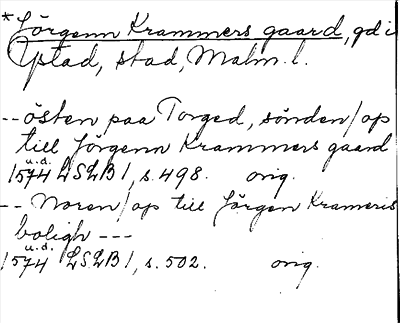 *Jörgenn Krammers gaard, gd i
Ystad, stad, Malm. l.
-- östen paa Torged, sönden/op
till Jörgenn Krammers gaard
u.d.
1574 LSLB1, s. 498. orig.
-- Noren/op till Jörgen Krameris
boligh ---
u.d.
1574 LSLB1, s. 502. orig.